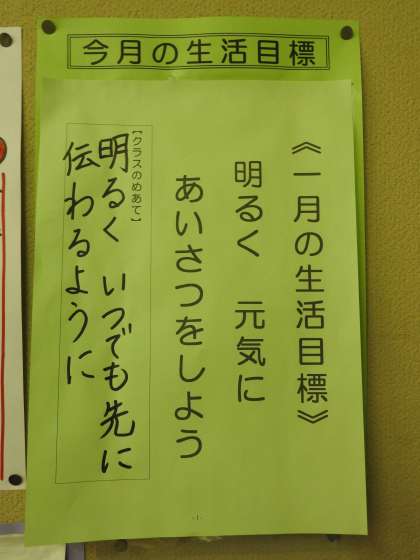 今月の生活目標
《一月の生活目標》
明るく　元気に
あいさつをしよう
【クラスのめあて】
明るく　いつでも先に
伝わるように
- 1 -